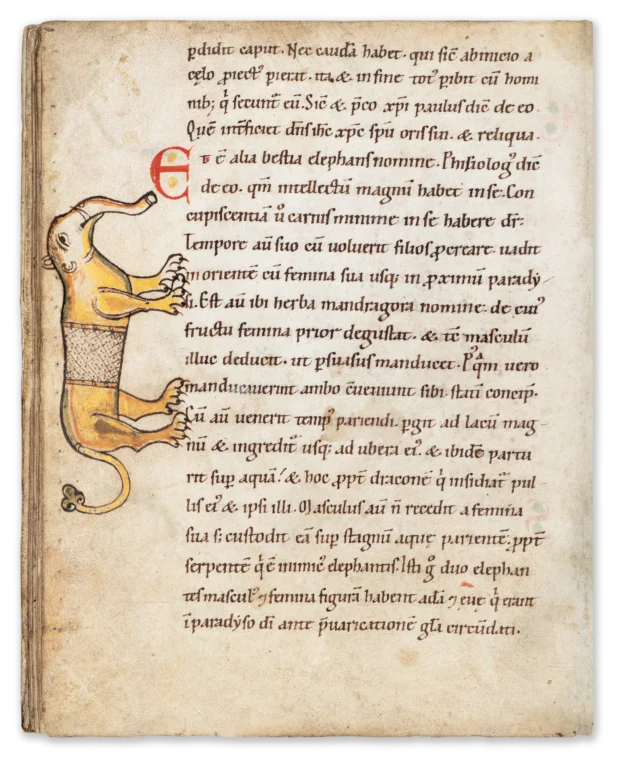 pdidit caput. Nec caudā habet. qui sic̄ ab inicio a
cęlo ꝓiect᾿ pierat. ita & in fine tot᾿ pibit cū homi
nib; q̇ secunt̄ eū. Sic̄ & p̄co xp̄i paulus dic̄ de eo.
Quē int̄ficiet dn̄s ihc̄ xp̄c sp̄u oris sui. & reliqua.
Est ē alia bestia elephans nomine. Phisiolog᾿ dic̄
de eo. qm̄ intellectū magnū habet in se. Con
cupiscentiā ů carnis minime in se habere dr̄.
Tempore aū suo cū voluerit filios ꝓcreare. vadit
in orientē cū femina sua usq; in ꝓximū parady
si. Est aū ibi herba mandragora nomine. de cui᾿
fructu femina prior degustat. & tc̄ masculū
illuc deducit. ut psuasus manducet. Pꝰq̄m vero
manducauerint ambo cēueniunt sibi. statī concip̄.
Cū aū venerit temp᾿ pariendi. pgit ad lacū mag
nū & ingredit᾿ usq; ad ubera ei᾿. & ibidē partu
rit sup aquā. & hoc ꝓpt̄ draconē q̇ insidiat᾿ pul
lis ei᾿ & ipsi illi. Masculus aū n̄ recedit a femina
sua s; custodit eā sup stagnū aque parientē. ꝓpt̄
serpentē q̇ ē inimic᾿ elephantis. Isti ḡ duo elephan
tes mascul᾿ ⁊ femina figurā habent adā ⁊ eue q̇ erant
ī paradyso dī ante p̄uaricationē gl̄a circūdati.